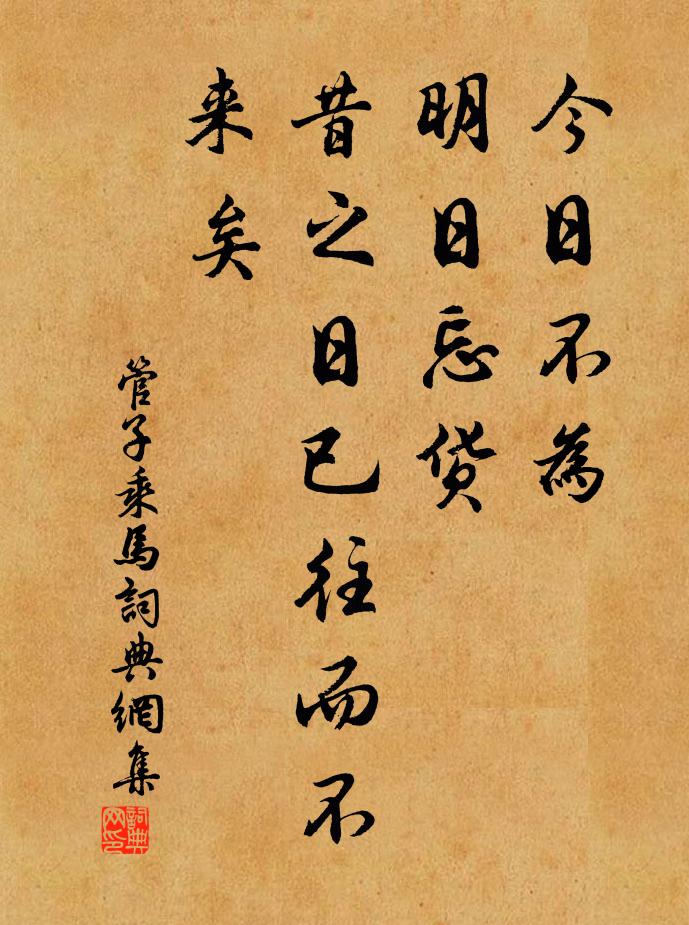 今日不為
明日忘货
昔之日已往而不
来矣
管子乘馬詞典網集
詞典网印